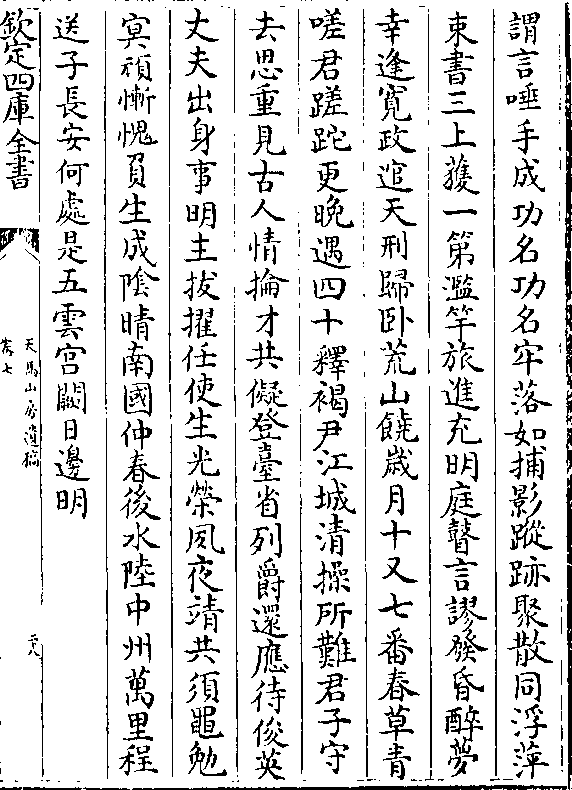 謂言唾手成功名功名牢落如捕影蹤跡聚散同浮萍
束書三上獲一第濫竽旅進充明庭瞽言謬發昏醉夢
幸逢寛政逭天刑歸卧荒山饒歳月十又七番春草青
嗟君蹉跎更晚遇四十釋褐尹江城清操所難君子守
去思重見古人情掄才共儗登臺省列爵還應待俊英
丈夫出身事明主拔擢任使生光榮夙夜靖共須黽勉
冥頑慚愧負生成陰晴南國仲春後水陸中州萬里程
送子長安何處是五雲宫闕日邊明
欽定四庫全書
天馬山房遺稿
卷七
二八